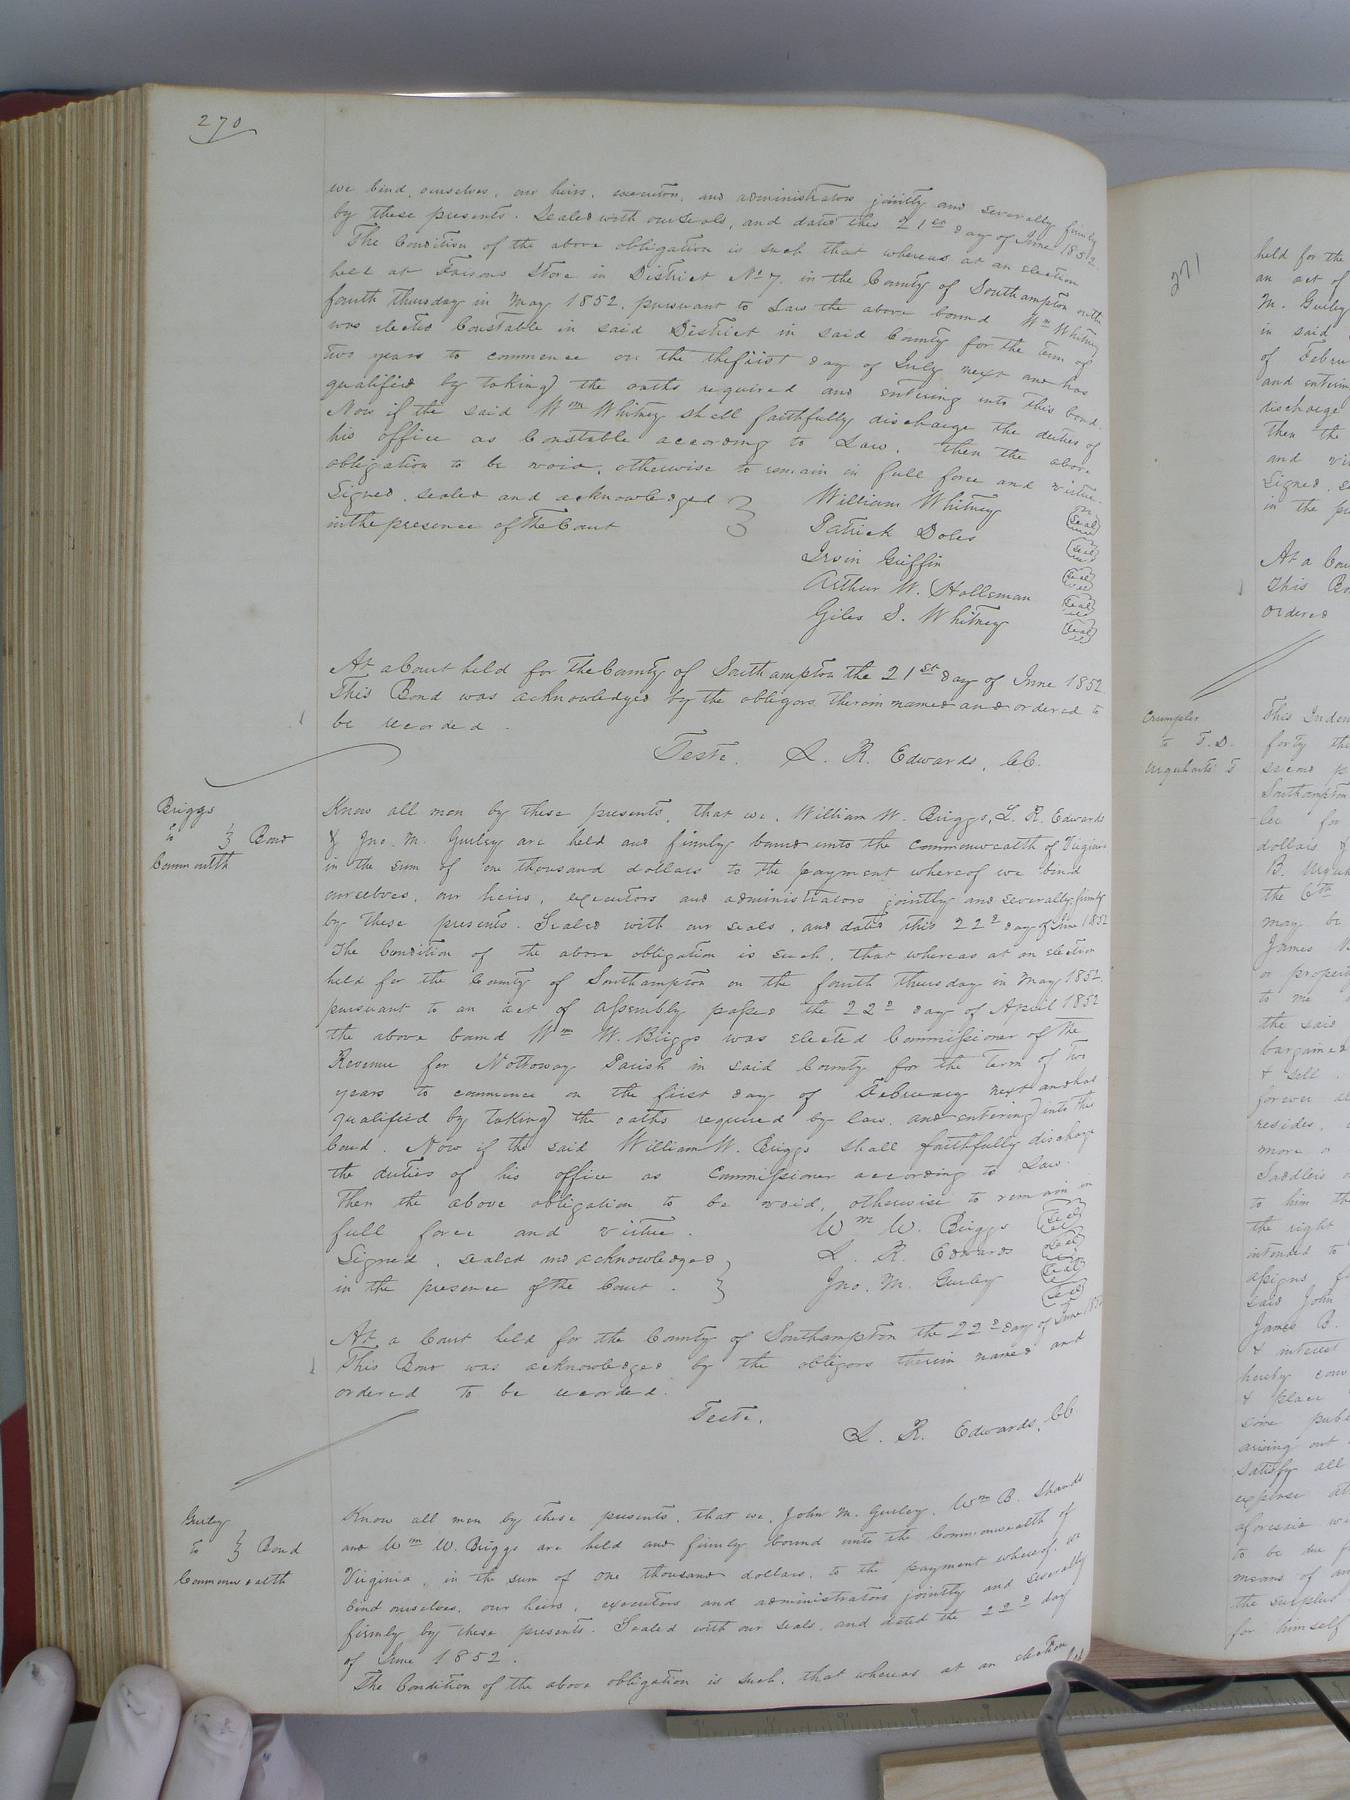 270
we bind, ourselves, our heirs, executors, and administrators jointly and severally firmly
by these presents. Sealed with our seals, and dated this 21st day of June 1852.
The Condition of the above obligation is such that whereas at an election
held at Faisons Store in District No 7. in the County of Southampton on the
fourth thursday in May 1852. pursuant to Law the above bound Wm Whitney
was elected Constable in said District in said County for the term of
two years to commence on the the first day of July next and has
qualified by taking the oaths required and entering into this bond.
Now if the said Wm Whitney shall faithfully discharge the duties of
his office as Constable according to Law, then the above
obligation to be void, otherwise to remain in full force and virtue.
Signed, sealed and acknowledged
in the presence of the Court
William Whitney Seal
Patrick Doles Seal
Irvin Griffin Seal
Arthur W. Holleman Seal
Giles S. Whitney Seal
At a Court held for the County of Southampton the 21st day of June 1852
This Bond was acknowledged by the obligors therein named and ordered to
be recorded.
Teste. L. R. Edwards, CC.
Briggs
to } Bond
Commonwlth
Know all men by these presents, that we, William W. Briggs, L. R. Edwards
& Jno. M. Gurley are held and firmly bound unto the Commonwealth of Virginia
in the sum of one thousand dollars to the payment whereof we bind
ourselves, our heirs, executors and administrators jointly and severally, firmly
by these presents. Sealed with our seals, and dated this 22d day of June 1852
The Condition of the above obligation is such, that whereas at an election
held for the County of Southampton on the fourth thursday in May 1852.
pursuant to an act of Assembly passed the 22d day of April 1852
the above bound Wm W. Briggs was elected Commissioner of the
Revenue for Nottoway Parish in said County for the term of two
years to commence on the first day of February next and has
qualified by taking the oaths required by law, and entering into this
bond. Now if the said William W. Briggs shall faithfully discharge
the duties of his office as Commissioner according to Law.
Then the above obligation to be void, otherwise to remain in
full force and virtue.
Signed, sealed and acknowledged
in the presence of the Court.
Wm W. Briggs Seal
L. R. Edwards Seal
Jno. M. Gurley Seal
Seal
At a Court held for the County of Southampton the 22d day of June 1852
This Bond was acknowledged by the obligors therein named and
ordered to be recorded.
Teste.
L. R. Edwards, CC.
Gurley
to } Bond
Commonwealth
Know all men by these presents, that we, John M. Gurley, Wm B. Shands
and Wm W. Briggs are held and firmly bound unto the Commonwealth of
Virginia, in the sum of one thousand dollars, to the payment whereof, we
bind ourselves, our heirs, executors and administrators jointly and severally
firmly by these presents. Sealed with our seals, and dated the 22d day
of June 1852.
The Condition of the above obligation is such, that whereas at an election held
271
held for the
an act of
M. Gurley
in said
of Febru
and enterin
discharge
then the
and vi
Signed, s
in the p
At a Cou
This Bo
ordered
Crumpler
to T.D.
Urquharts T
This Inden
forty th
second p
Southampton
lee for
dollars
B. Urquh
the 6th
may be
James
or propert
to me
the said
bargained
& sell
forever al
resides,
more o
Saddlers
to him th
the right
intended to
assigns f
said John
James B.
& interest
hereby conv
& place
some pub
arising out
satisfy all
expense at
aforesaid w
to be due f
means of an
the surplus
for himself